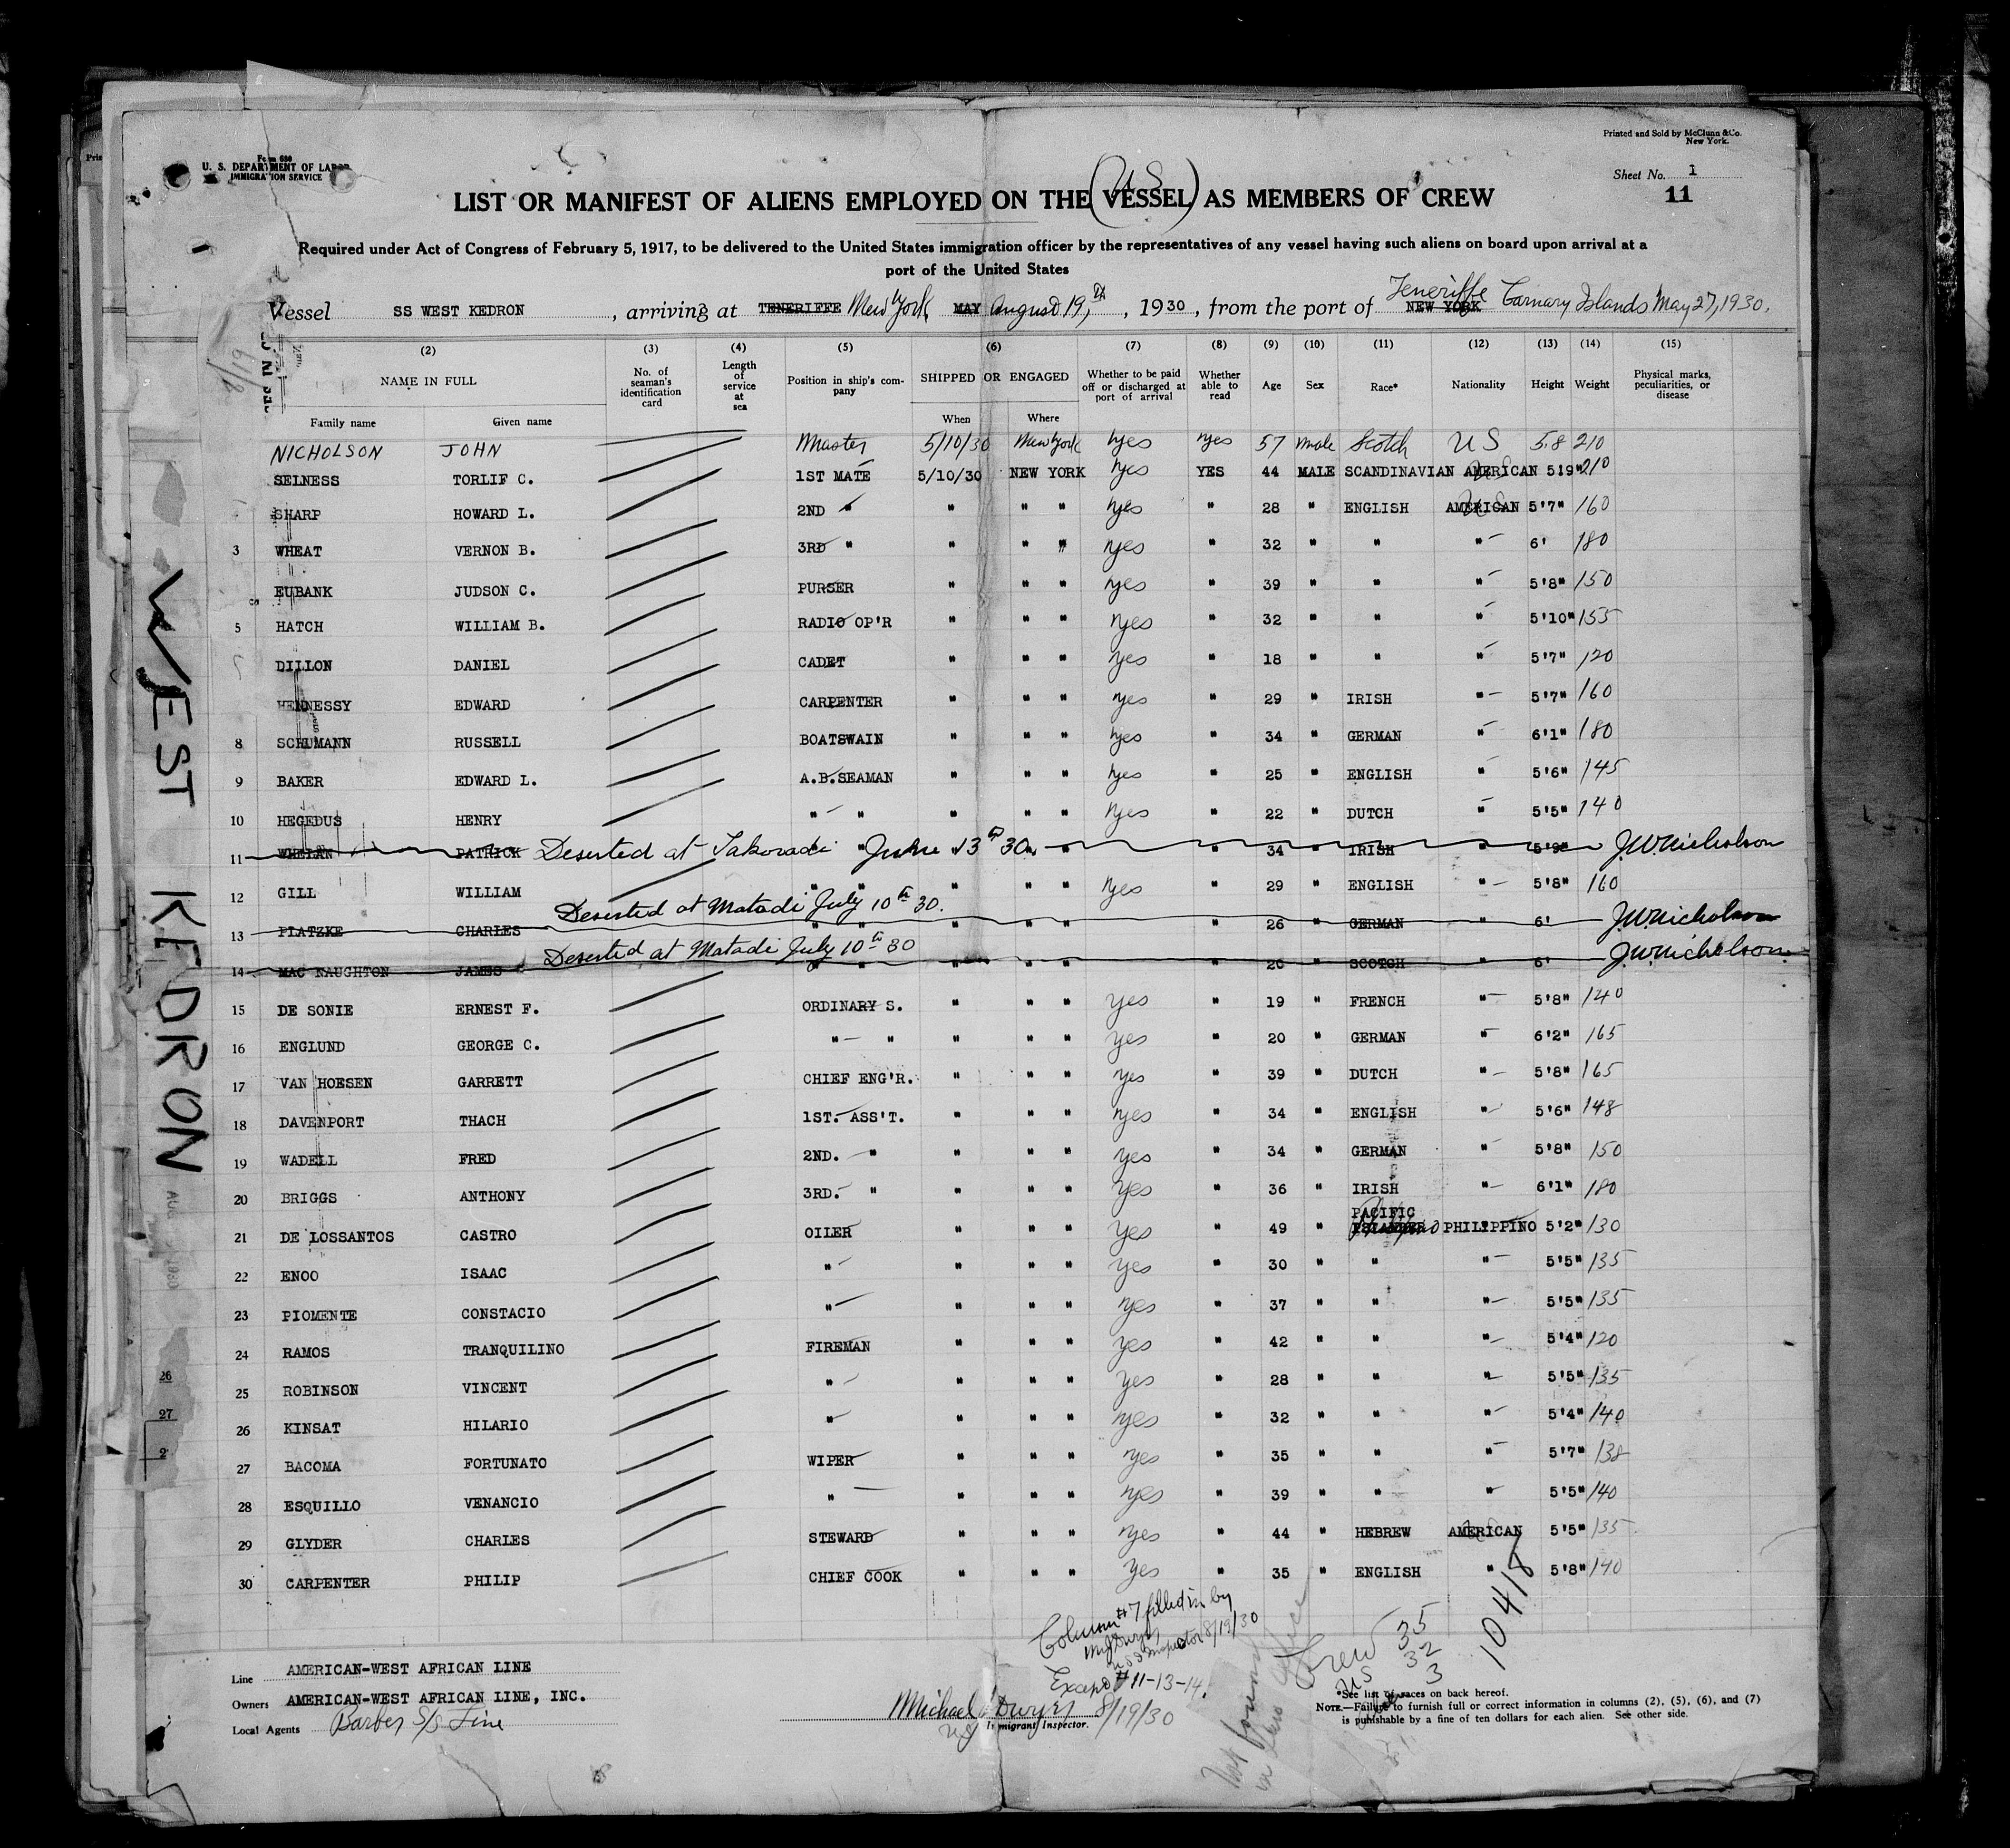 Printed and Sold by McClunn & Co.
New York.
Form 630
U. S. DEPARTMENT OF LABOR
IMMIGRATION SERVICE
Sheet No. 1
11
US
LIST OR MANIFEST OF ALIENS EMPLOYED ON THE (VESSEL) AS MEMBERS OF CREW
Required under Act of Congress of February 5, 1917, to be delivered to the United States immigration officer by the representatives of any vessel having such aliens on board upon arrival at a
port of the United States
Vessel SS WEST KEDRON, arriving at TENERIFFE New York, MAY August 19, th, 1930, from the port of NEW YORK Teneriffe Carnary Islands May 27, 1930.
8/19
(2) (3) (4) (5) (6) (7) (8) (9) (10) (11) (12) (13) (14) (15)
NAME IN FULL No. of seaman's identification card Length of service at sea Position in ship's company SHIPPED OR ENGAGED Whether to be paid off or discharged at port of arrival Whether able to read Age Sex Race* Nationality Height Weight Physical marks, peculiarities, or disease
Family name Given name When Where
NICHOLSON JOHN Master 5/10/30 New York yes yes 57 male Scotch US 5.8 210
SELNESS TORLIF C. 1ST MATE 5/10/30 NEW YORK yes YES 44 MALE SCANDINAVIAN AMERICAN US 5'9" 210
SHARP HOWARD L. 2ND " " " " yes " 28 " ENGLISH AMERICAN US 5'7" 160
3 WHEAT VERNON B. 3RD " " " " yes " 32 " " " 6' 180
EUBANK JUDSON C. PURSER " " " yes " 39 " " " 5'8" 150
5 HATCH WILLIAM B. RADIO OP'R " " " yes " 32 " " " 5'10" 155
DILLON DANIEL CADET " " " yes " 18 " " " 5'7" 120
HENNESSY EDWARD CARPENTER " " " yes " 29 " IRISH " 5'7" 160
8 SCHUMANN RUSSELL BOATSWAIN " " " yes " 34 " GERMAN " 6'1" 180
9 BAKER EDWARD L. A.B.SEAMAN " " " yes " 25 " ENGLISH " 5'6" 145
10 HEGEDUS HENRY " " " " " yes " 22 " DUTCH " 5'5" 140
11 WHELAN PATRICK Deserted at Takoradi June 13th 30. " " 34 IRISH " 5'9" J.W.Nicholson
12 GILL WILLIAM " " " " " yes " 29 " ENGLISH " 5'8" 160
Deserted at Matadi July 10th 30.
13 PLATZKE CHARLES " " " " " " 26 " GERMAN " 6' J.W.Nicholson
Deserted at Matadi July 10th 30
14 MAC NAUGHTON JAMES " " " " " " 26 " SCOTCH " 6' J.W.Nicholson
15 DE SONIE ERNEST F. ORDINARY S. " " " yes " 19 " FRENCH " 5'8" 140
16 ENGLUND GEORGE C. " " " " " yes " 20 " GERMAN " 6'2" 165
17 VAN HOESEN GARRETT CHIEF ENG'R. " " " yes " 39 " DUTCH " 5'8" 165
18 DAVENPORT THACH 1ST. ASS'T. " " " yes " 34 " ENGLISH " 5'6" 148
19 WADELL FRED 2ND. " " " " yes " 34 " GERMAN " 5'8" 150
20 BRIGGS ANTHONY 3RD. " " " " yes " 36 " IRISH " 6'1" 180
21 DE LOSSANTOS CASTRO OILER " " " yes " 49 " PACIFIC ISLANDER PHILIPPINO 5'2" 130
22 ENOO ISAAC " " " " yes " 30 " " " 5'5" 135
23 PIOMENTE CONSTACIO " " " " yes " 37 " " " 5'5" 135
24 RAMOS TRANQUILINO FIREMAN " " " yes " 42 " " " 5'4" 120
25 ROBINSON VINCENT " " " " yes " 28 " " " 5'5" 135
26 KINSAT HILARIO " " " " yes " 32 " " " 5'4" 140
27 BACOMA FORTUNATO WIPER " " " yes " 35 " " " 5'7" 138
28 ESQUILLO VENANCIO " " " " yes " 39 " " " 5'5" 140
29 GLYDER CHARLES STEWARD " " " yes " 44 " HEBREW AMERICAN US 5'5" 135
30 CARPENTER PHILIP CHIEF COOK " " " yes " 35 " ENGLISH " 5'8" 140
WEST KEDRON
26
27
2
Column #7 filled in by
US Inspector 8/19/30
Except #11-13-14.
Crew 35
US 32
3
10418
Line AMERICAN-WEST AFRICAN LINE
Owners AMERICAN-WEST AFRICAN LINE, INC.
Local Agents Barber S/S Line
Michael Dwyer 8/19/30
US Immigrant Inspector.
Not found
in
*See list of races on back hereof.
NOTE.—Failure to furnish full or correct information in columns (2), (5), (6), and (7)
is punishable by a fine of ten dollars for each alien. See other side.